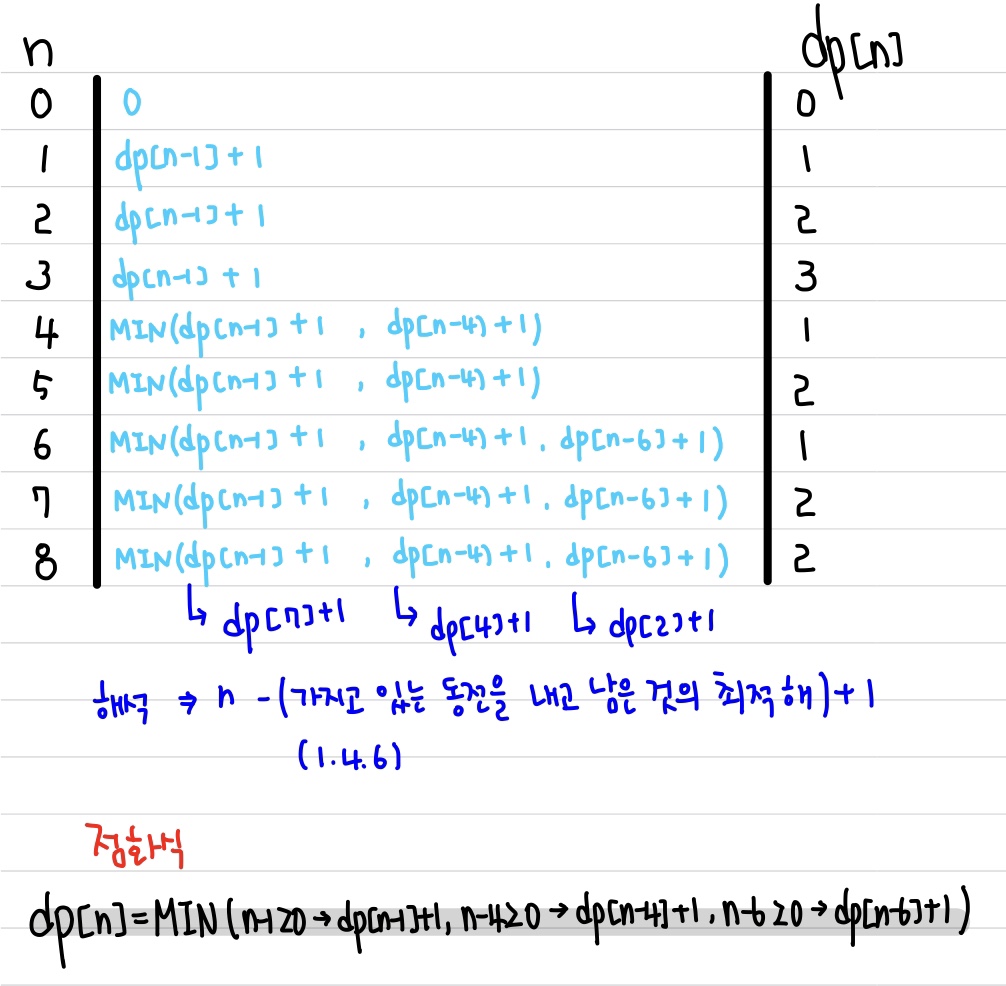 n dp[n]
0 0 0
1 dp[n-1]+1 1
2 dp[n-1]+1 2
3 dp[n-1]+1 3
4 MIN(dp[n-1]+1 , dp[n-4)+1) 1
5 MIN(dp[n-1]+1 , dp[n-4)+1) 2
6 MIN(dp[n-1]+1 , dp[n-4)+1, dp[n-6]+1) 1
7 MIN(dp[n-1]+1 , dp[n-4)+1, dp[n-6]+1) 2
8 MIN(dp[n-1]+1 , dp[n-4)+1, dp[n-6]+1) 2
↳ dp[7]+1 ↳ dp[4]+1 ↳ dp[2]+1
해석 ⇒ n -(가지고 있는 동전을 내고 남은 것의 최적해)+1
(1.4.6)
점화식
dp[n]=MIN(n-1≥0→dp[n-1]+1, n-4≥0→dp[n-4]+1, n-6≥0→dp[n-6]+1)